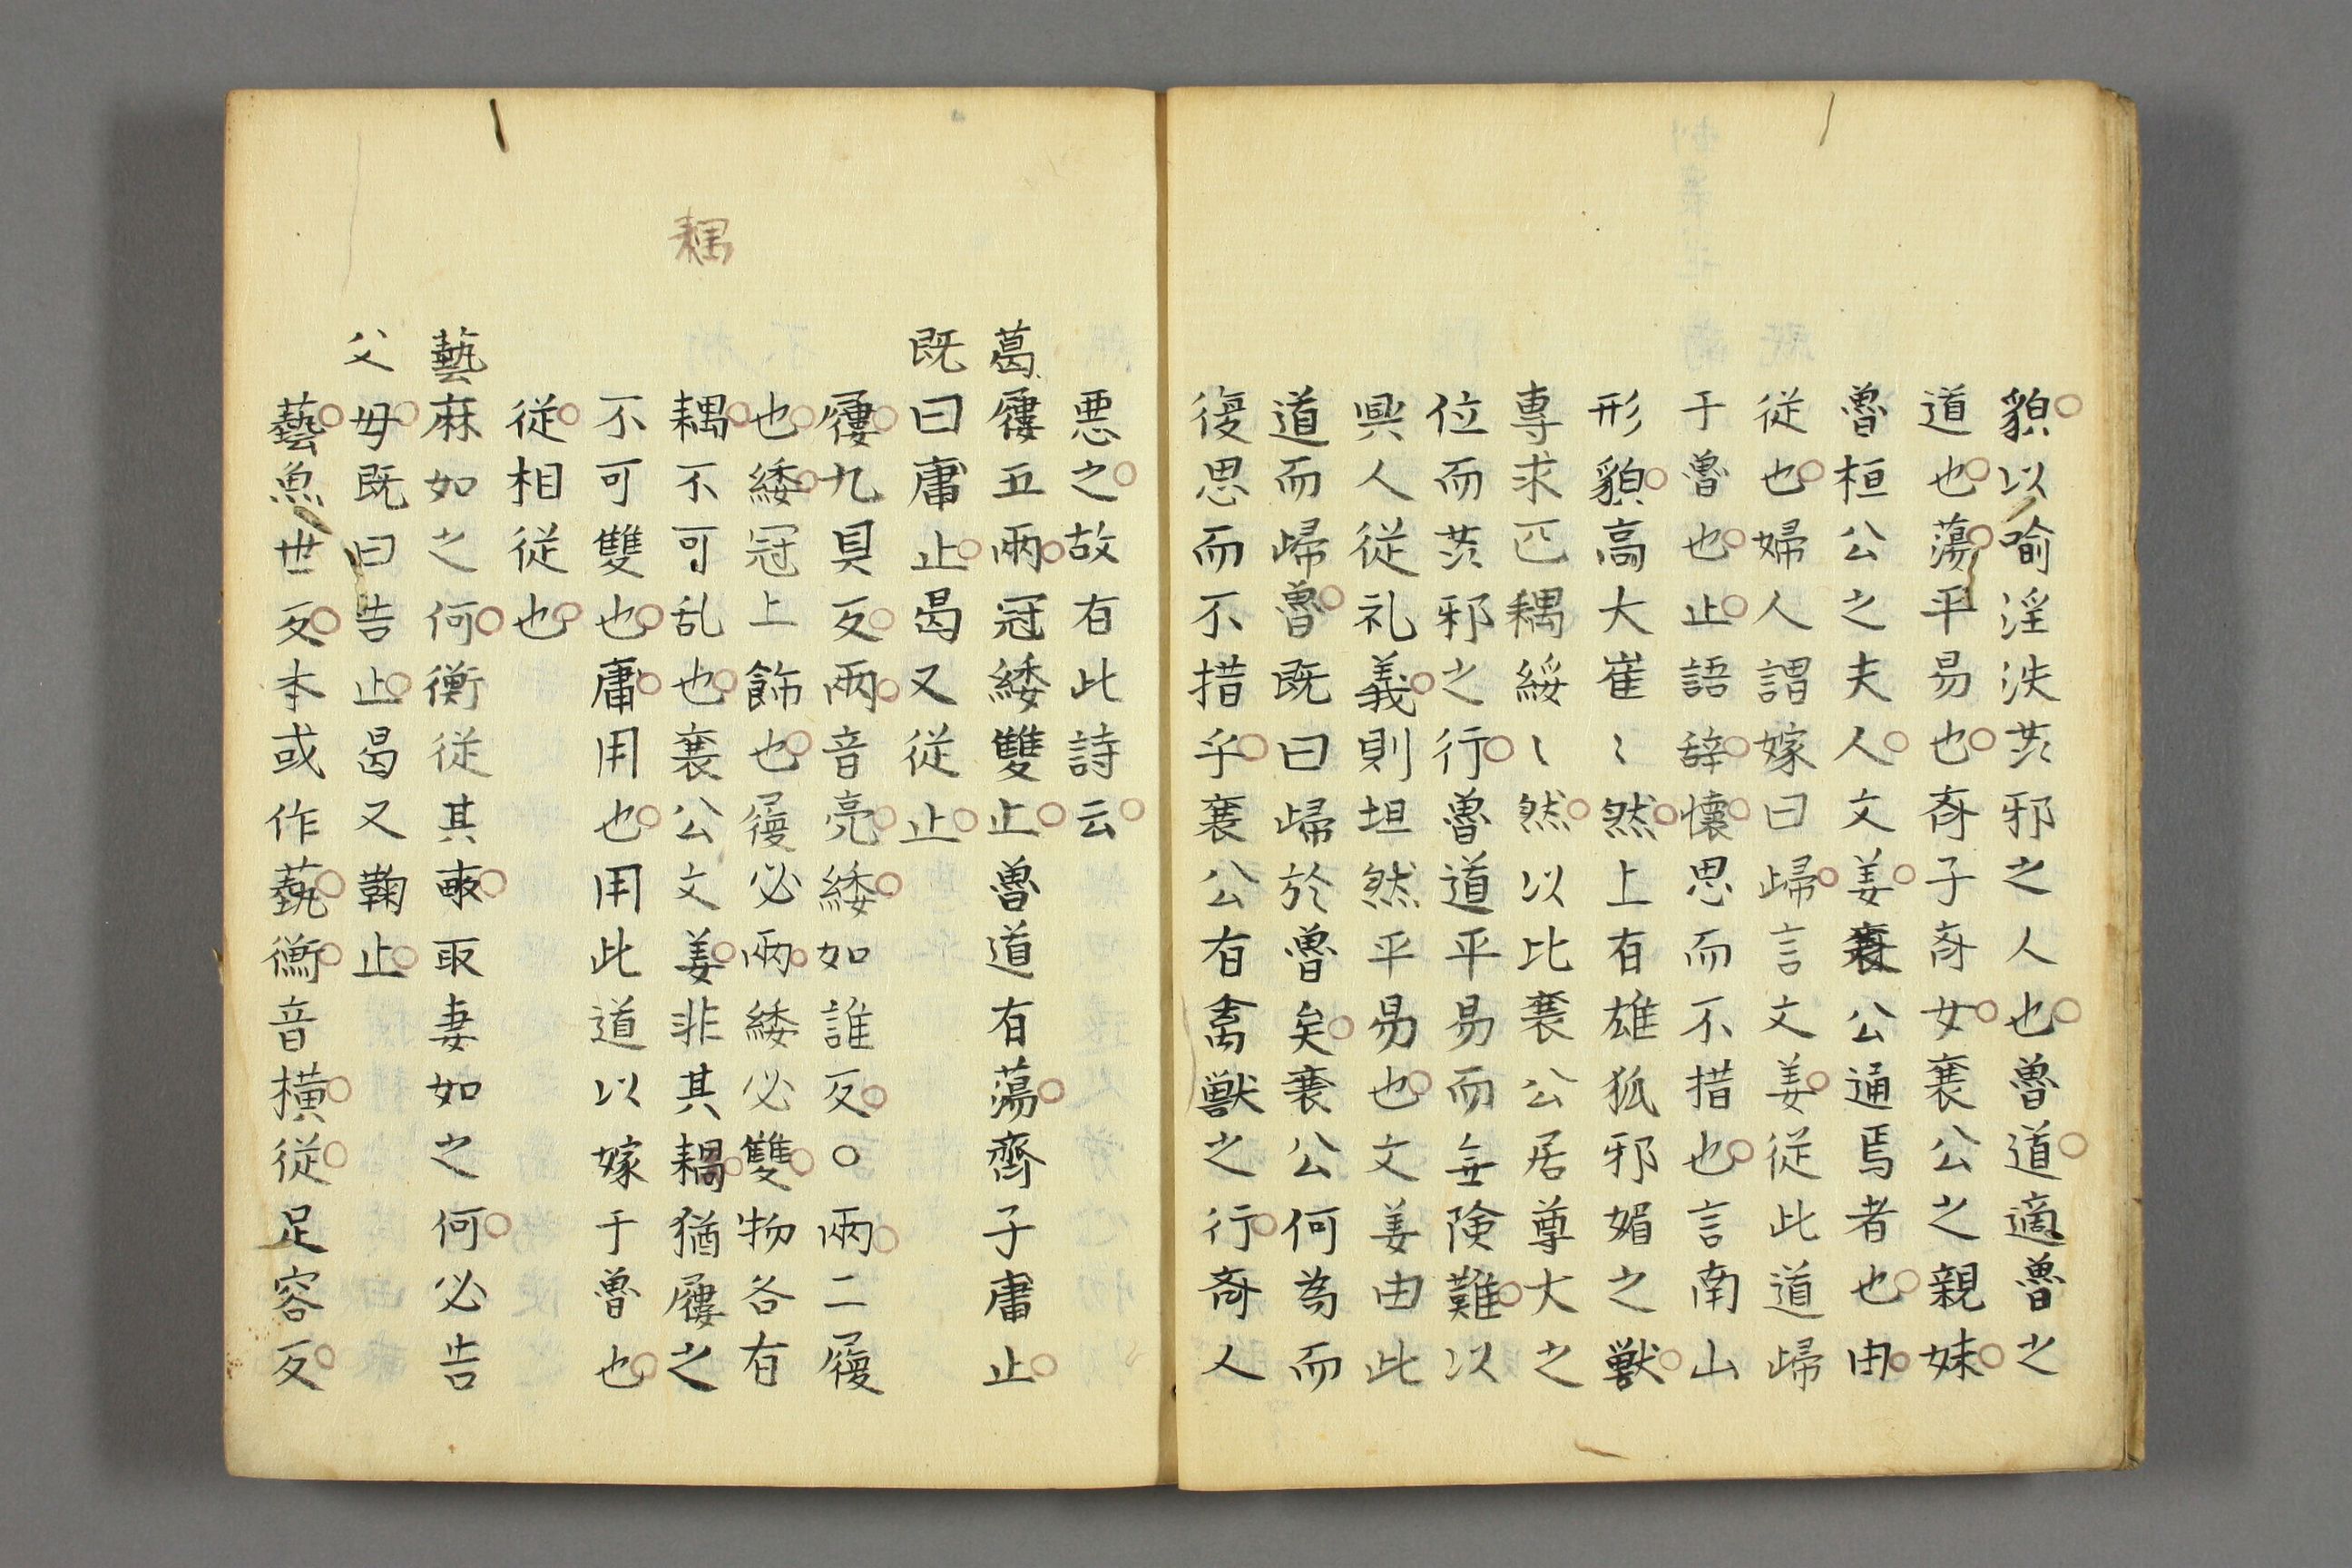 貌以喻淫泆共邪之人也魯道適魯之
道也蕩平易也斎子斎女襄公之親妹
魯桓公之夫人文姜襄公通焉者也由
従也婦人謂嫁曰歸言文姜従此道歸
于魯也止語辞懐思而不措也言南山
形貌高大崔〻然上有雄狐邪媚之獣
専求匹耦綏〻然以比襄公居尊大之
位而共邪之行魯道平易而無険難以
興人従礼義則坦然平易也文姜由此
道而歸魯既曰歸於魯矣襄公何為而
復思而不措乎襄公有禽獣之行斎人
悪之故有此詩云
葛屨五兩冠緌雙止魯道有蕩齊子庸止
既曰庸止曷又従止
屨九具反兩音亮緌如誰反〇兩二履
也緌冠上飾也履必兩緌必雙物各有
耦不可乱也襄公文姜非其耦猶屨之
不可雙也庸用也用此道以嫁于魯也
従相従也
耦
藝麻如之何衡従其畝取妻如之何必告
父母既曰告止曷又鞠止
藝魚世反本或作蓺衡音横従足容反